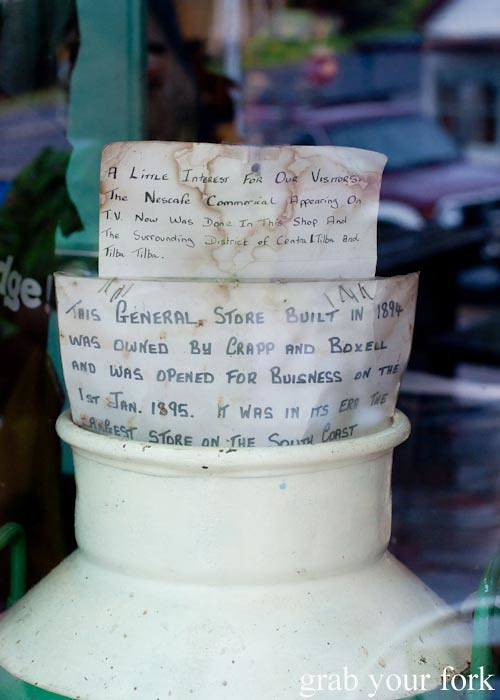 A Little Interest For Our Visitors.
The Nescafe Commerical Appearing On
T.V. Now Was Done In This Shop And
The Surrounding District of Central Tilba And
Tilba Tilba.
THIS GENERAL STORE BUILT IN 1894
WAS OWNED BY CRAPP AND BOXELL
AND WAS OPENED FOR BUISNESS ON THE
1ST JAN. 1895. IT WAS IN ITS ERA THE
LARGEST STORE ON THE SOUTH COAST
dge!
grab your fork